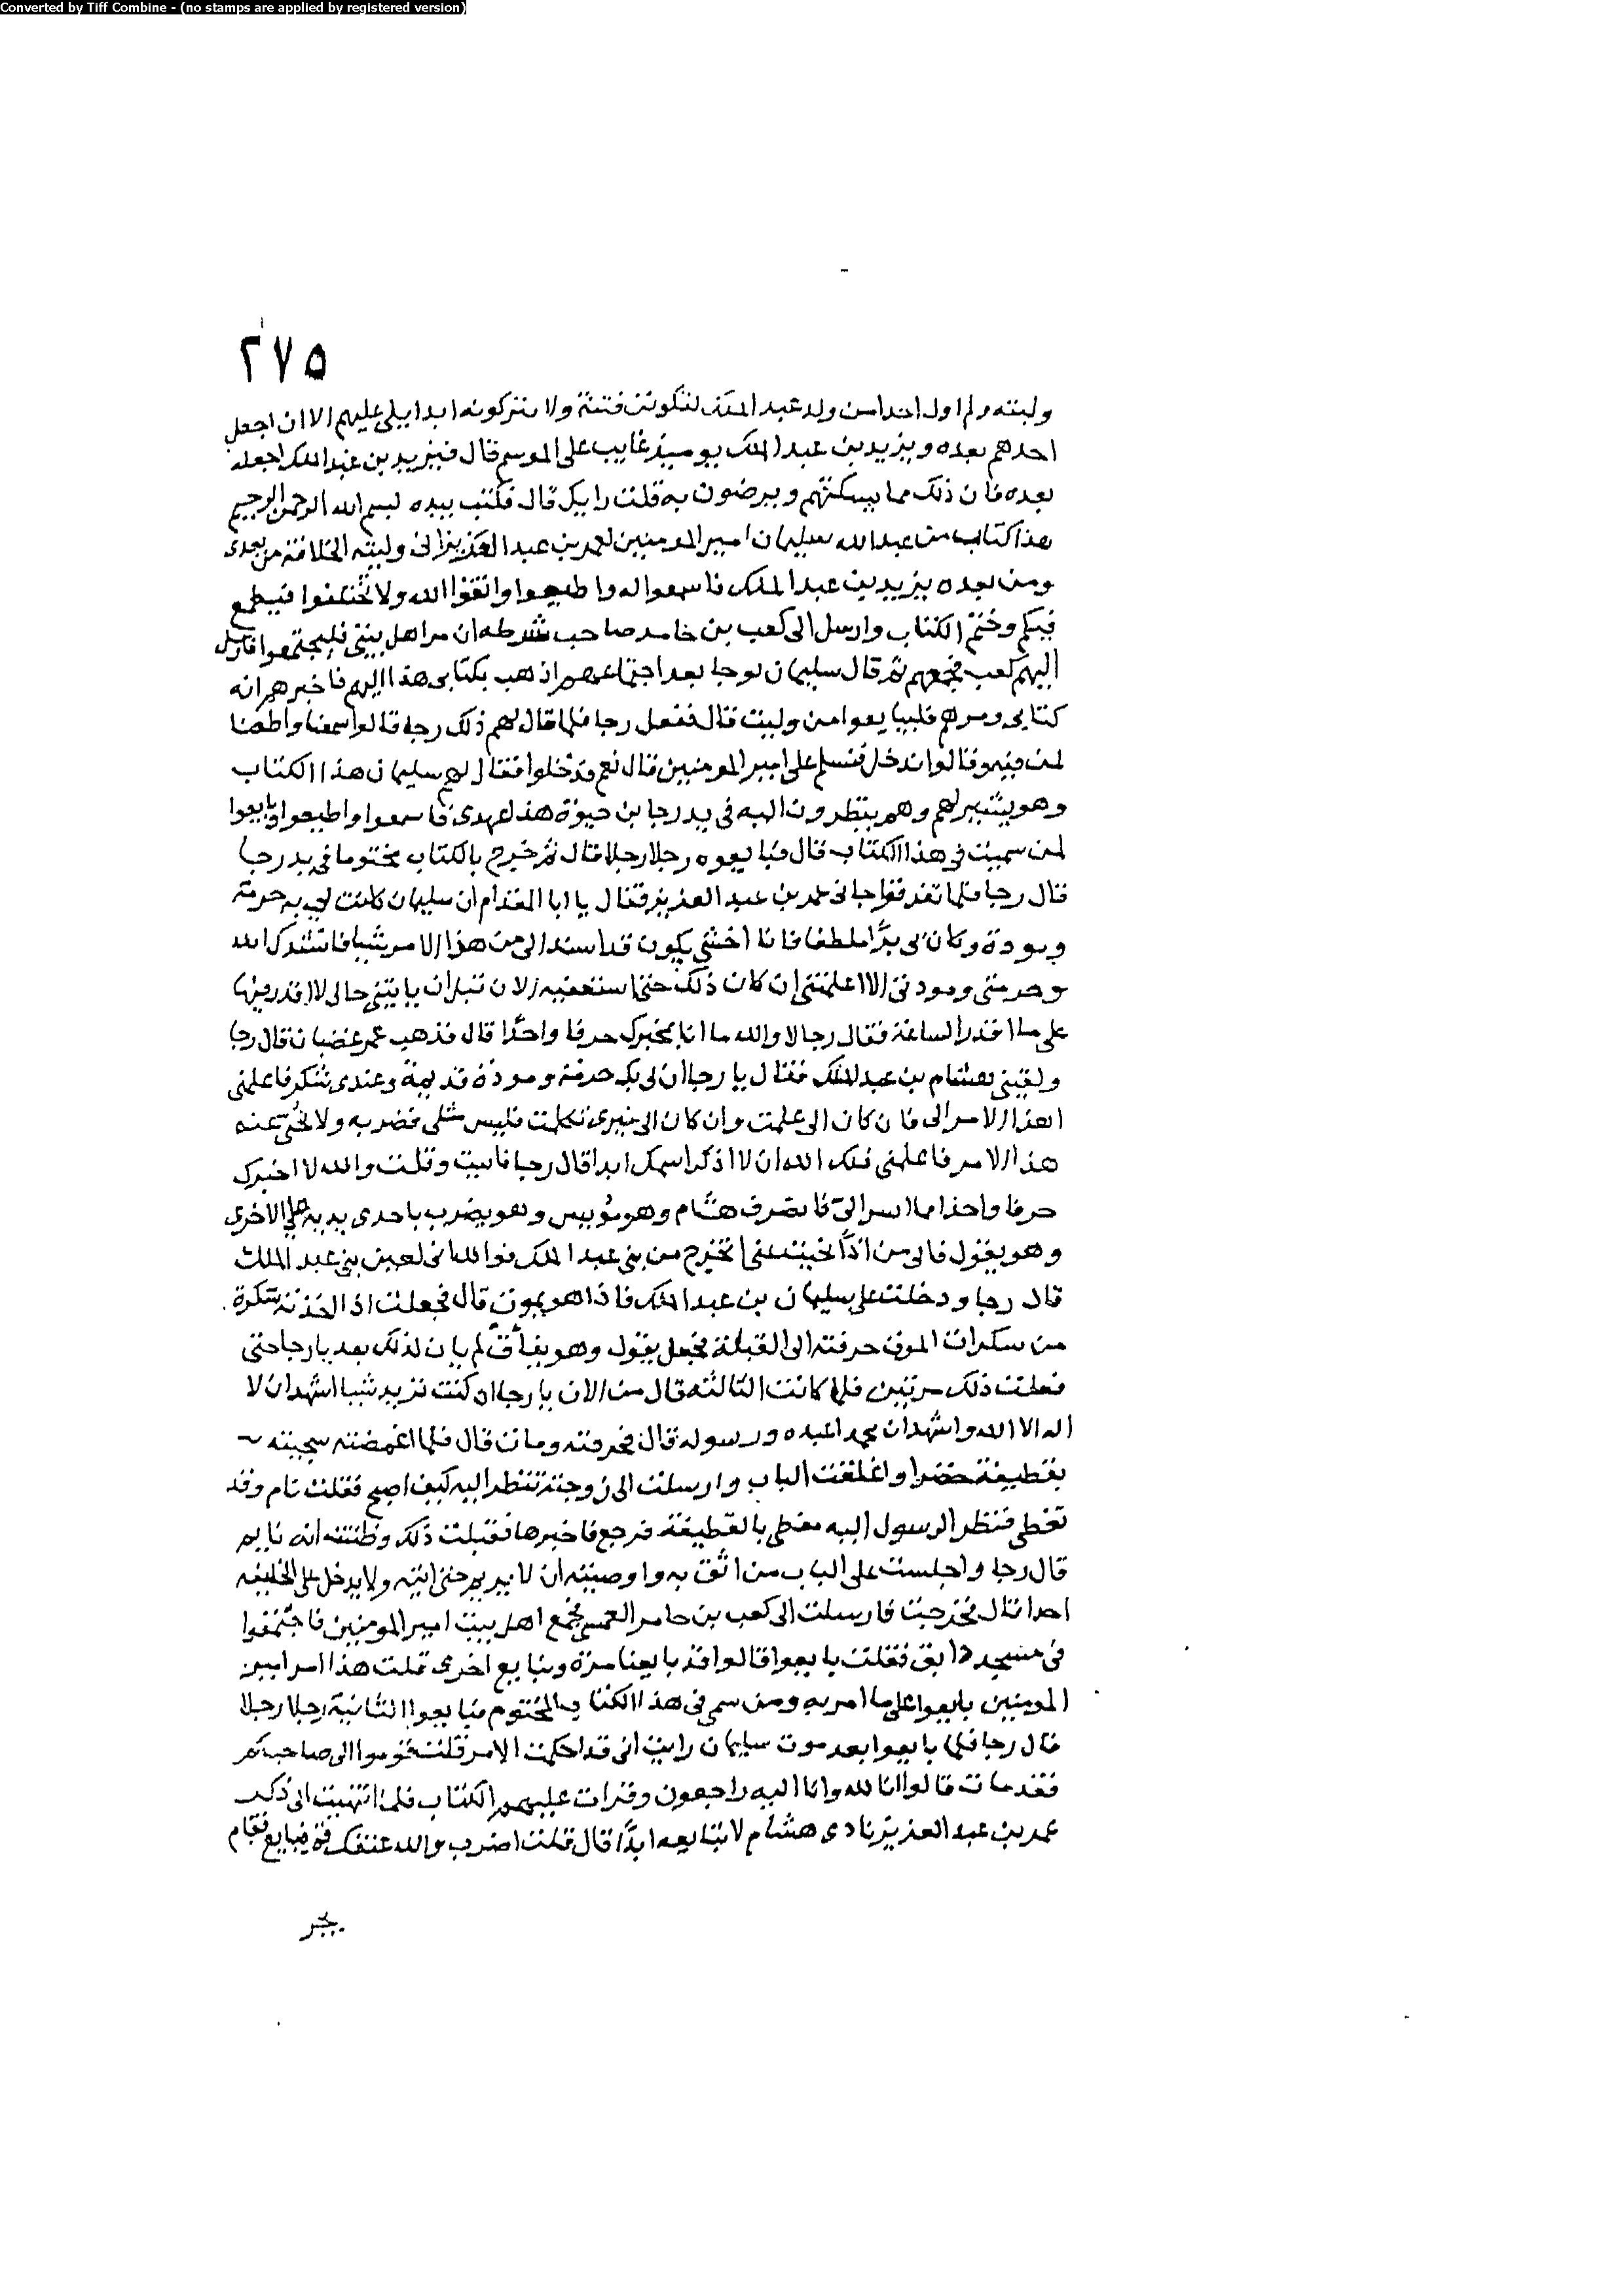 Converted by Tiff Combine - (no stamps are applied by registered version)
٢٧٥
وليته ولم اول احدا من ولد عبد الملك لتكونن فتنة ولا يتركونه ابدا يلى عليهم الا ان اجعل
احدهم بعده ويزيد بن عبد الملك يوميذ غايب على الموسم قال فيزيد بن عبد الملك اجعله
بعده فان ذلك مما يسكنهم ويرضون به قلت رايك قال فكتب بيده بسم الله الرحمن الرحيم
هذا كتاب من عبد الله سليمان امير المومنين لعمر بن عبد العزيز انى وليته الخلافة من بعدى
ومن بعده يزيد بن عبد الملك فاسمعوا له واطيعوا واتقوا الله ولا تختلفوا فيطمع
فيكم وختم الكتاب وارسل الى كعب بن خامد صاحب شرطه ان مر اهل بيتى فليجتمعوا فارسل
اليهم كعب فجمعهم ثم قال سليمان لرجا بعد اجتماعهم اذهب بكتابى هذا اليهم فاخبرهم انه
كتابى ومرهم فليبايعوا من وليت قال ففعل رجا فلما قال لهم ذلك رجا قالوا سمعنا واطعنا
لمن فيه وقالوا ندخل فنسلم على امير المومنين قال نعم فدخلوا فقال لهم سليمان هذا الكتاب
وهو يشير لهم وهم ينظرون اليه فى يد رجا بن حيوة هذا عهدى فاسمعوا واطيعوا وبايعوا
لمن سميت فى هذا الكتاب قال فبايعوه رجلا رجلا قال ثم خرج بالكتاب مختوما فى يد رجا
قال رجا فلما تفرقوا جانى عمر بن عبد العزيز فقال يا ابا المقدام ان سليمان كانت لى به حرمة
ومودة وكان بى برًا ملطفا فانا اخشى يكون قد اسند الى من هذا الامر شيا فانشدك الله
وحرمتى ومودتى الا اعلمتنى ان كان ذلك حتى استعفيه الان قبل ان ياتينى حال لا اقدر فيها
على ما اقدر الساعة فقال رجا لا والله ما انا بمخبرك حرفا واحدًا قال فذهب عمر غضبان قال رجا
ولقينى هشام بن عبد الملك فقال يا رجا ان لى بك حرمة ومودة قديمة وعندى شكر فاعلمنى
اهذا الامر الى فان كان الى علمت وان كان الى غيرى تكلمت فليس مثلى قصر به ولا نحى عنه
هذا الامر فاعلمنى فلك الله ان لا اذكر اسمك ابدا قال رجا فابيت وقلت والله لا اخبرك
حرفا واحدا مما اسر الىّ فانصرف هشام وهو مويس وهو يضرب باحدى يديه على الاخرى
وهو يقول فالى من اذًا نحيت عنى اتخرج من بنى عبد الملك فوالله انى لعين بنى عبد الملك
قال رجا ودخلت على سليمان بن عبد الملك فاذا هو يموت قال فجعلت اذا اخذته سكرة
من سكرات الموت حرفته الى القبلة فجعل يقول وهو يفأق لم يان لذلك بعد يا رجا حتى
فعلت ذلك مرتين فلما كانت الثالثة قال من الان يا رجا ان كنت تريد شيا اشهد ان لا
اله الا الله واشهد ان محمدا عبده ورسوله قال فحرفته ومات قال فلما اغمضته سجيته
بقطيفة خضرا واغلقت الباب وارسلت الى زوجته تنظر اليه كيف اصبح فقلت نام وقد
تغطى فنظر الرسول اليه مغطى بالقطيفة فرجع فاخبرها فقبلت ذلك وظنت انه نايم
قال رجا واجلست على الباب من اثق به واوصيته ان لا يريم حتى اتيه ولا يدخل على الخليفه
احدا قال فخرجت فارسلت الى كعب بن حامر العمسى فجمع اهل بيت امير المومنين فاجتمعوا
فى مسجد دابق فقلت بايعوا قالوا قد بايعنا مرة ونبايع اخرى قلت هذا امر امير
المومنين بايعوا على ما امر به ومن سمى فى هذا الكتاب المختوم فبايعوا الثانية رجلا رجلا
قال رجا فلما بايعوا بعد موت سليمان رايت انى قد احكمت الامر قلت قوموا الى صاحبكم
فقد مات قالوا انا لله وانا اليه راجعون وقرات عليهم الكتاب فلما انتهيت الى ذكر
عمر بن عبد العزيز نادى هشام لا نبايعه ابدًا قال قلت اضرب والله عنقك قم فبايع فقام
يجر